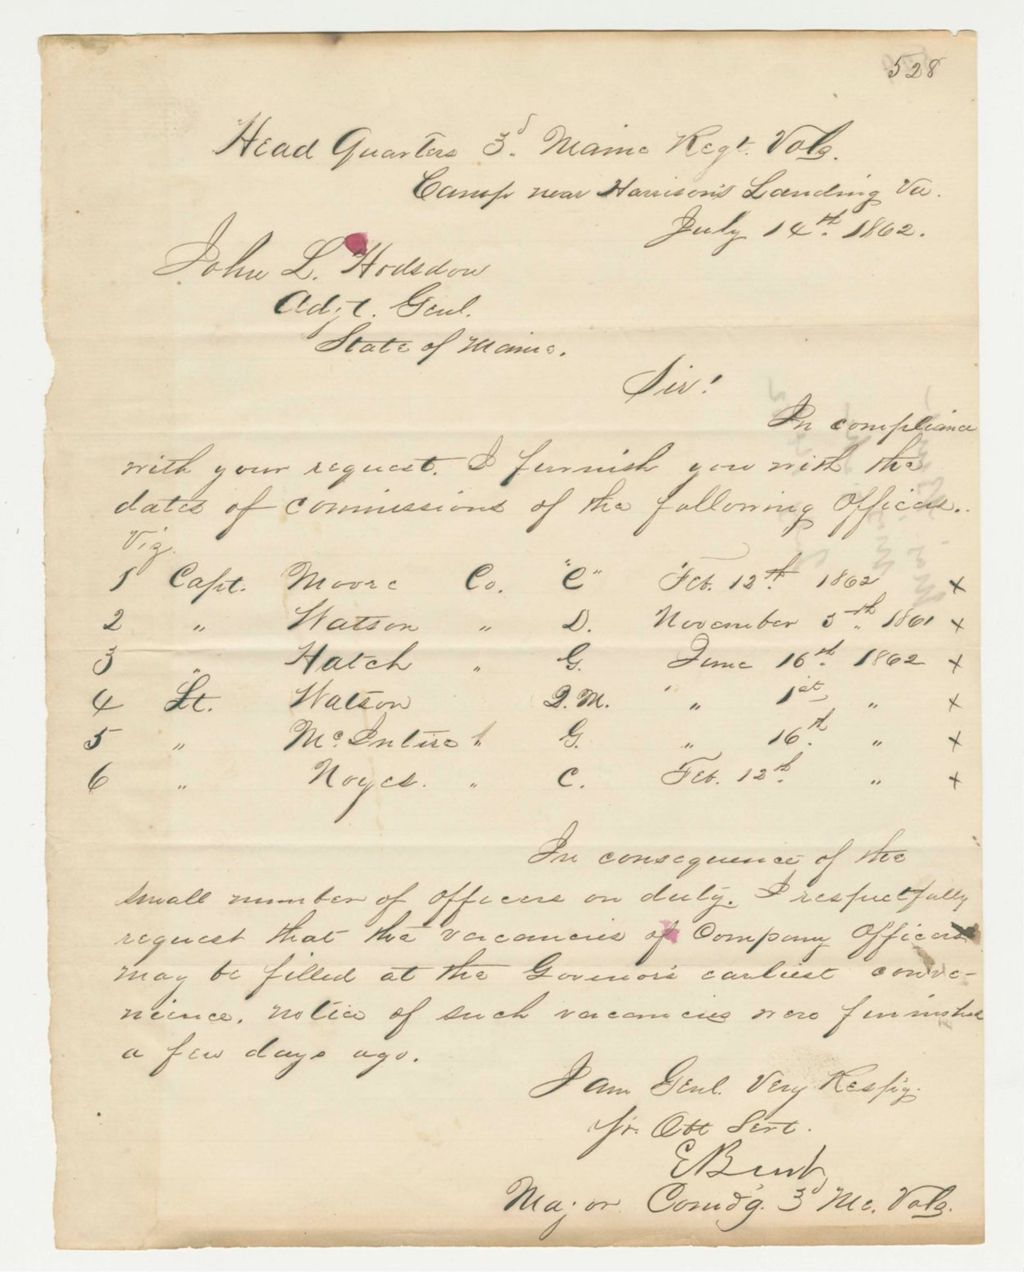 528
Head Quarters 3d. Maine Regt. Vols.
Camp near Harrison's Landing Va.
July 14th. 1862.
John L. Hodsdon
Adjt. Genl.
State of Maine.
Sir!
In compliance
with your request. I furnish you with the
dates of commissions of the following Officers.
Viz.
1 Capt. Moore Co. "C" Feb. 12th 1862 x
2 " Watson " D. November 5th. 1861 x
3 " Hatch " G. June 16th. 1862 x
4 Lt. Watson Q.M. " " 1st " x
5 " McIntire " G. " 16th. " x
6 " Noyes. " C. Feb. 12th " x
In consequence of the
small number of officers on duty. I respectfully
request that the vacancies of Company Officers
may be filled at the Govenor's earliest conve-
nience. notice of such vacancies were furnished
a few days ago.
I am Genl. Very Resp'y.
Yr. Obt Servt.
E Burt
Major Comd'g. 3d Me. Vols.